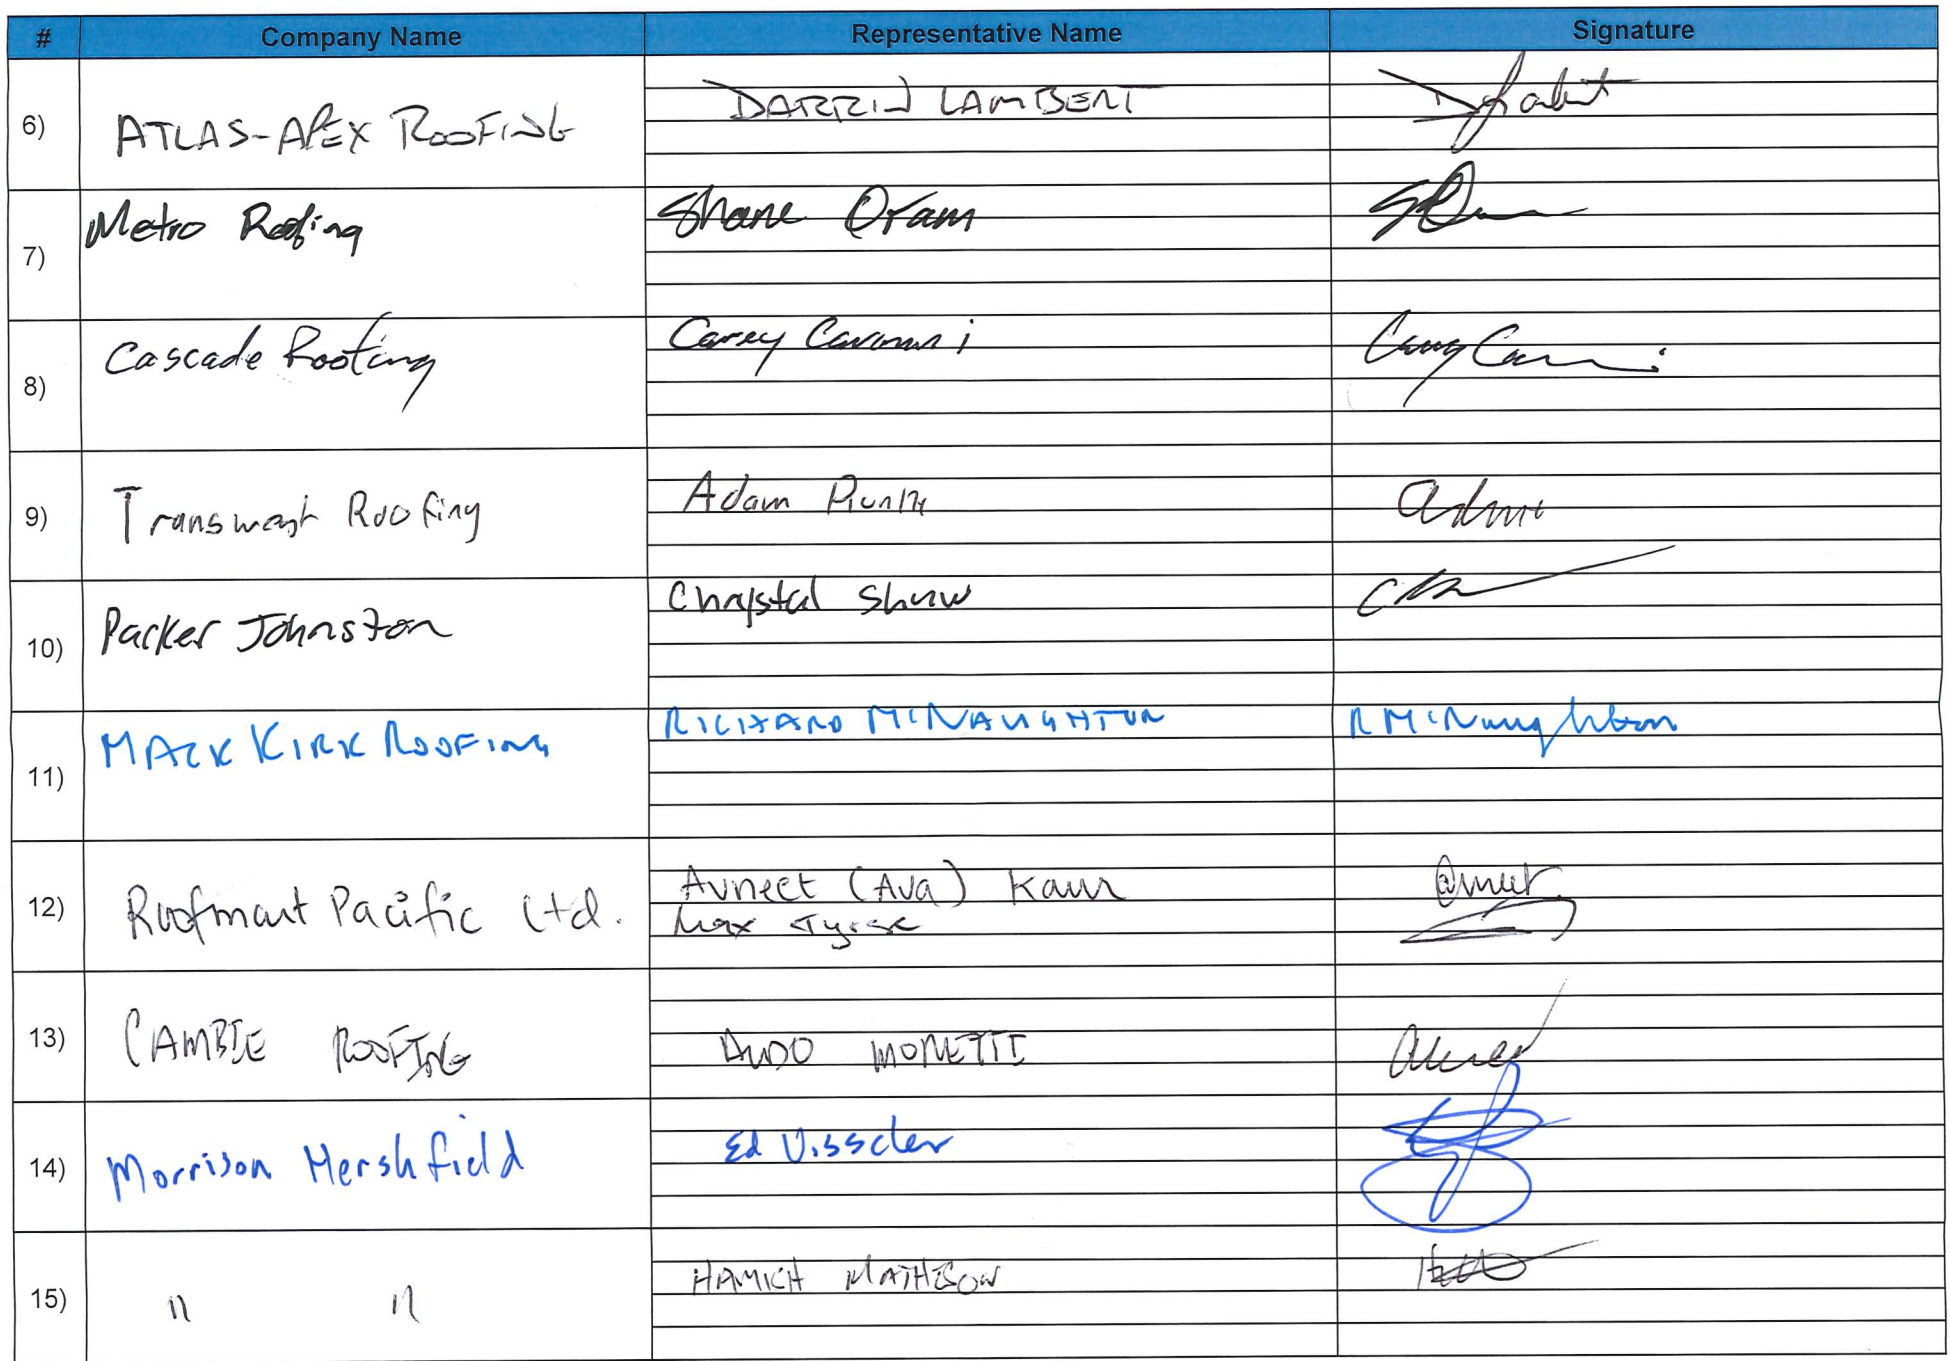 # Company Name Representative Name Signature
6) ATLAS-APEX ROOFING DARRIN LAMBERT
7) Metro Roofing Shane Oram
8) Cascade Roofing Carey
9) Transwest Roofing Adam
10) Parker Johnston Chrystal Shaw
11) MACK KIRK ROOFING RICHARD MCNAUGHTON R McNaughton
12) Roofmart Pacific Ltd. Avneet (Ava) Kaur
Max
13) CAMBIE ROOFING MONETTE
14) Morrison Hershfield Ed Visscher
15) " " HAMISH MATHESON